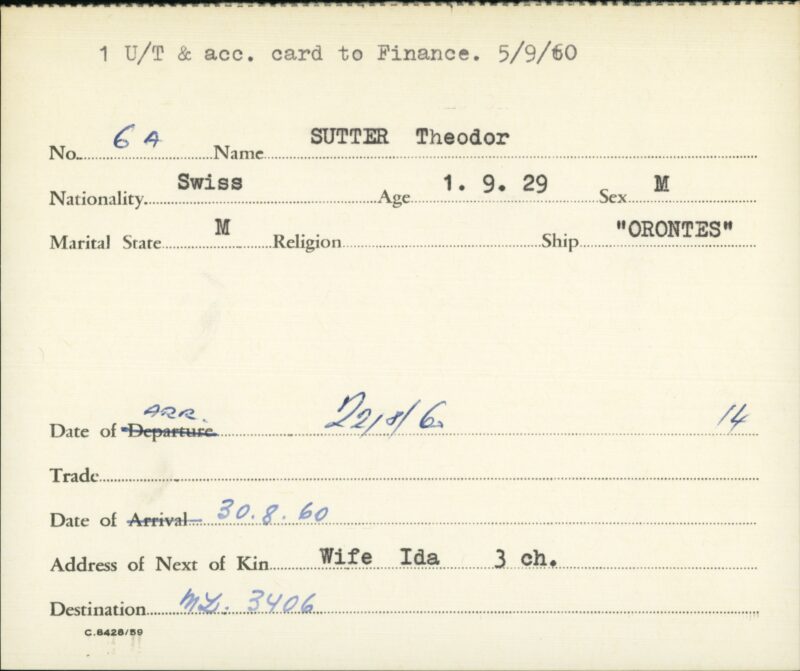 1 U/T & acc. card to Finance. 5/9/60
No. 6 A Name SUTTER Theodor
Nationality Swiss Age 1. 9. 29 Sex M
Marital State M Religion Ship "ORONTES"
ARR.
Date of Departure 22/8/60 14
Trade
Date of Arrival 30.8.60
Address of Next of Kin Wife Ida 3 ch.
Destination 3406
C.8428/59